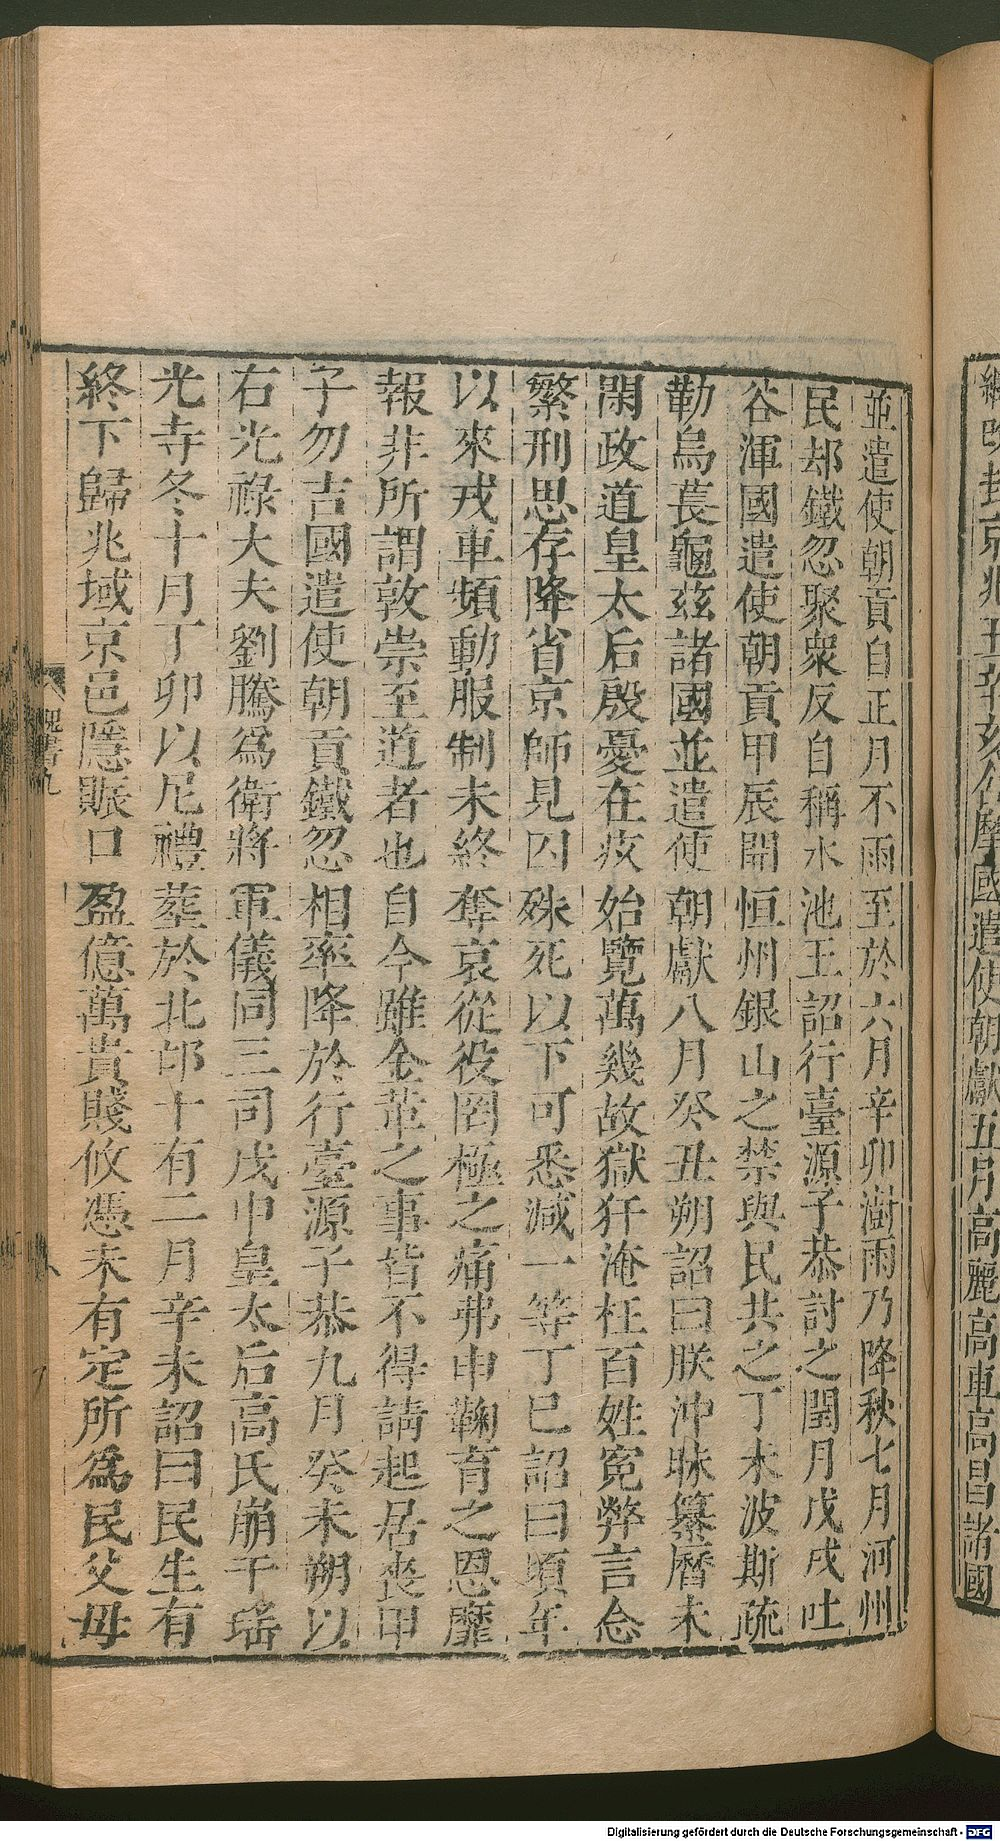 網吹
國遣使朝獻五月高麗高車高昌諸國
並遣使朝貢自正月不雨至於六月辛卯澍雨乃降秋七月河州
民却鐵忽聚衆反自稱水池王詔行臺源子恭討之閏月戊戌吐
谷渾國遣使朝貢甲辰開恒州銀山之禁與民共之丁未波斯疏
勒烏萇龜兹諸國並遣使朝獻八月癸丑朔詔曰朕沖昧纂曆未
閑政道皇太后殷憂在疚始覽萬幾故獄犴淹枉百姓冤弊言念
繁刑思存降省京師見囚殊死以下可悉減一等丁巳詔曰頃年
以來戎車頻動服制未終奪哀從役罔極之痛弗申鞠育之恩靡
報非所謂敦崇至道者也自今雖金革之事皆不得請起居喪甲
子勿吉國遣使朝貢鐵忽相率降於行臺源子恭九月癸未朔以
右光祿大夫劉騰爲衛將軍儀同三司戊申皇太后高氏崩于瑤
光寺冬十月丁卯以尼禮葬於北邙十有二月辛未詔曰民生有
終下歸兆域京邑隱賑口盈億萬貴賤攸憑未有定所爲民父母
魏書九
八
Digitalisierung gefördert durch die Deutsche Forschungsgemeinschaft - DFG